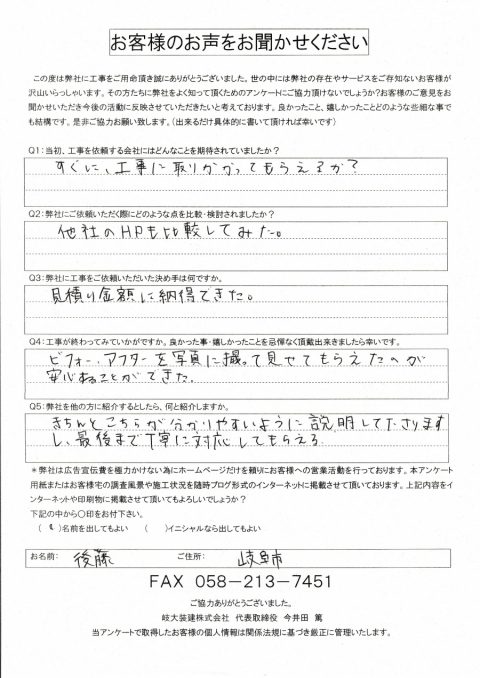 お客様のお声をお聞かせください
この度は弊社に工事をご用命頂き誠にありがとうございました。世の中には弊社の存在やサービスをご存知ないお客様が
沢山いらっしゃいます。その方たちに弊社をよく知って頂くためのアンケートにご協力頂けないでしょうか？お客様のご意見をお
聞かせいただき今後の活動に反映させていただきたいと考えております。良かったこと、嬉しかったことどのような些細な事で
も結構です。是非ご協力お願い致します。（出来るだけ具体的に書いて頂ければ幸いです）
Q1：当初、工事を依頼する会社にはどんなことを期待されていましたか？
すぐに、工事に取りかかってもらえるか？
Q2：弊社にご依頼いただく際にどのような点を比較・検討されましたか？
他社のHPも比較してみた。
Q3：弊社に工事をご依頼いただいた決め手は何ですか。
見積り金額に納得できた。
Q4：工事が終わってみていかがですか。良かった事・嬉しかったことを忌憚なく頂戴出来きましたら幸いです。
ビフォー、アフターを写真に撮って見せてもらえたのが
安心することができた。
Q5：弊社を他の方に紹介するとしたら、何と紹介しますか。
きちんとこちらが分かりやすいように説明して下さります
し、最後まで丁寧に対応してもらえる
＊弊社は広告宣伝費を極力かけない為にホームページだけを頼りにお客様への営業活動を行っております。本アンケート
用紙またはお客様宅の調査風景や施工状況を随時ブログ形式のインターネットに掲載させて頂いております。上記内容をイ
ンターネットや印刷物に掲載させて頂いてもよろしいでしょうか？
下記の中から○印をお付下さい。
（ ）名前を出してもよい （ ）イニシャルなら出してもよい
お名前： 後藤 ご住所： 岐阜市
FAX 058－213－7451
ご協力ありがとうございました。
岐大装建株式会社 代表取締役 今井田 篤
当アンケートで取得したお客様の個人情報は関係法規に基づき厳正に管理いたします。